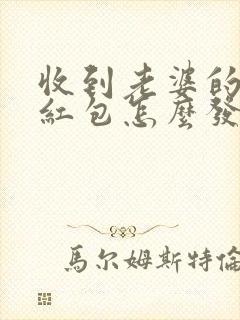 收到老婆的
紅包怎麼發
馬尔姆斯特倫